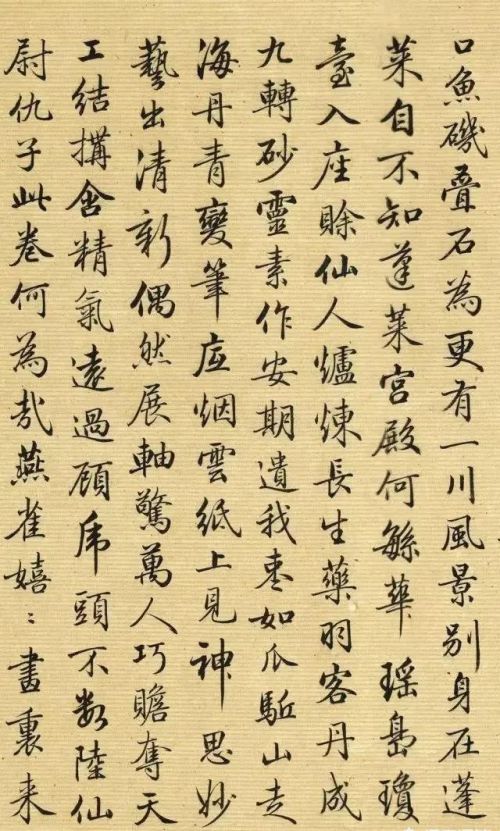 口魚磯疊石為更有一川風景别身在蓬
萊自不知蓬萊宮殿何緐華瑶島瓊
臺入座賒仙人爐煉長生藥羽客丹成
九轉砂靈素作安期遺我棗如瓜駈山走
海丹青變筆底烟雲紙上見神思妙
藝出清新偶然展軸驚萬人巧瞻奪天
工結搆含精氣遠過顧虎頭不數陸仙
尉仇子此卷何為哉燕雀嬉〻畫裏来